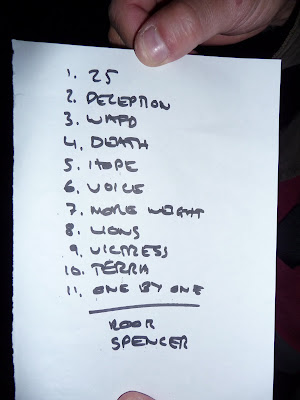 1. 25
2. DECEPTION
3. WARD
4. DEATH
5. HOPE
6. VOICE
7. MORE WEIGHT
8. LIONS
9. VICTRESS
10. TERRA
11. ONE BY ONE
SPENCER